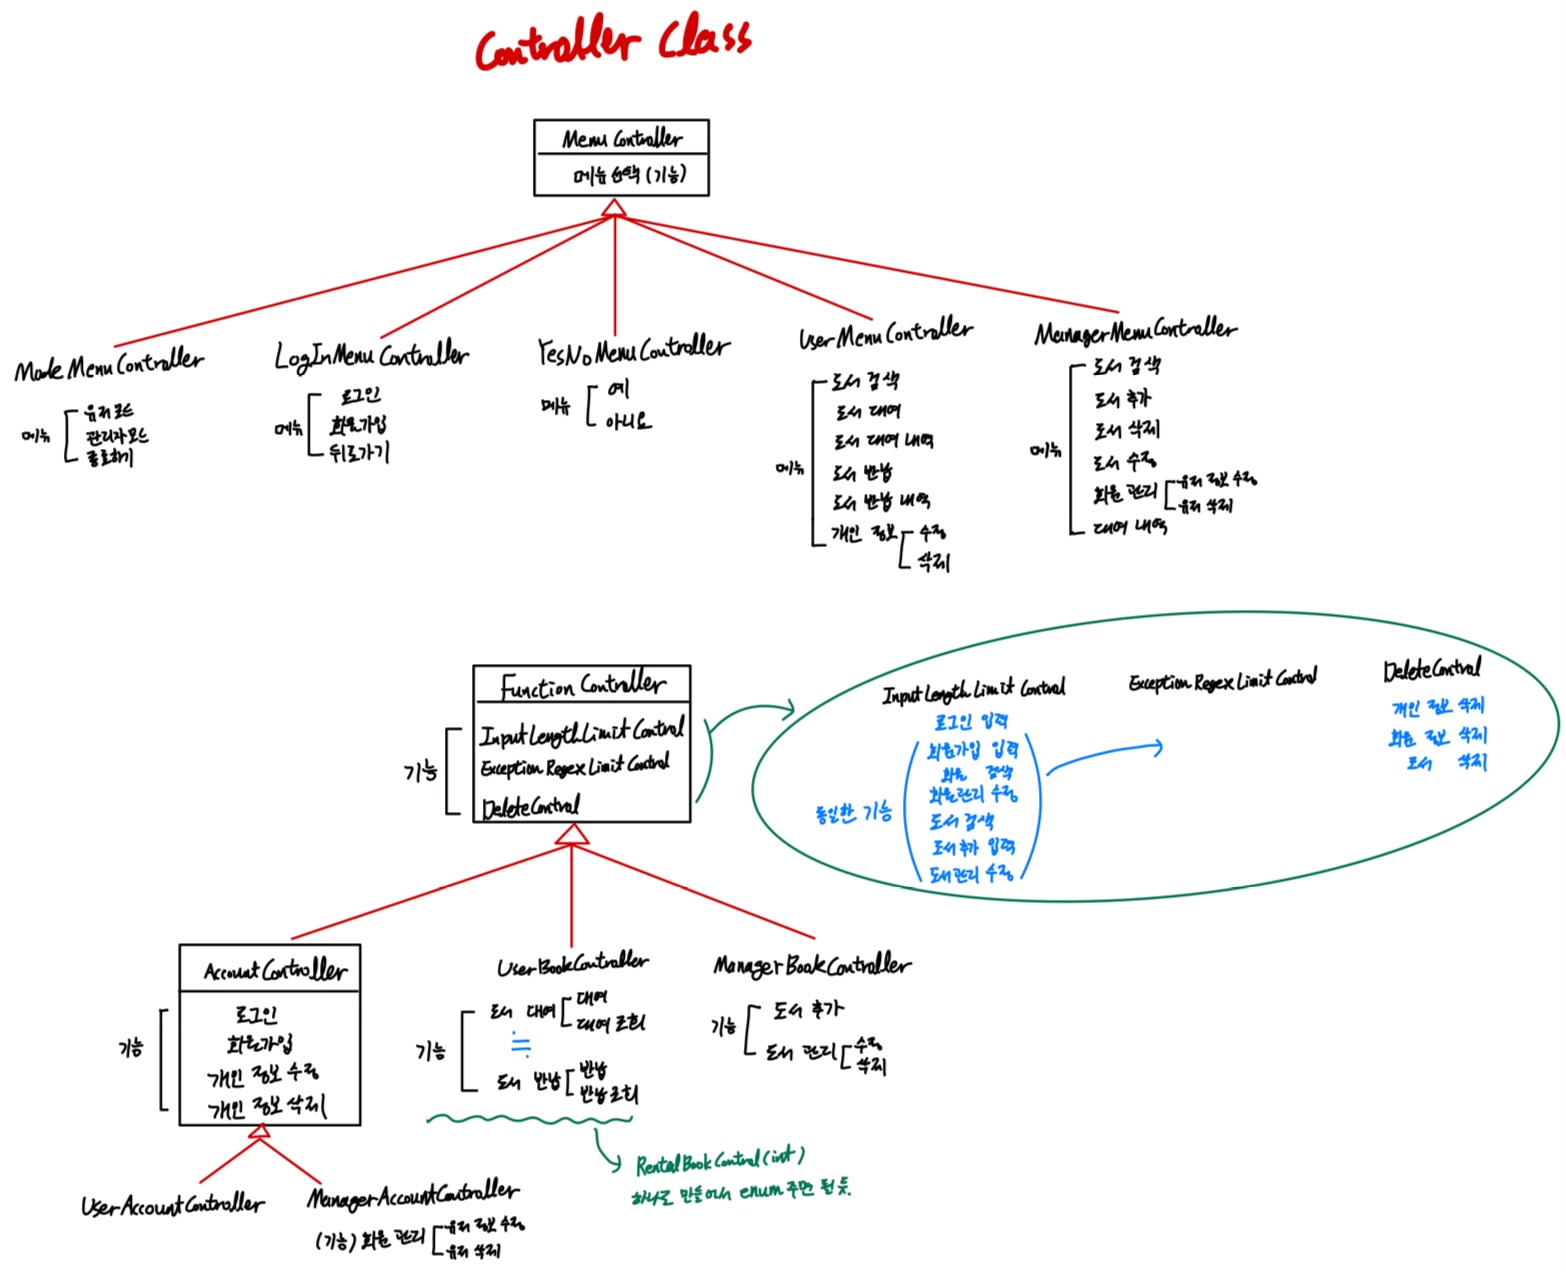 Controller Class
Menu Controller
메뉴 선택 (기능)
Mode Menu Controller
메뉴
유저모드
관리자모드
종료하기
LogInMenu Controller
메뉴
로그인
회원가입
뒤로가기
YesNo Menu Controller
메뉴
예
아니요
User Menu Controller
메뉴
도서 검색
도서 대여
도서 대여 내역
도서 반납
도서 반납 내역
개인 정보
수정
삭제
ManagerMenuController
메뉴
도서 검색
도서 추가
도서 삭제
도서 수정
회원 관리
유저 정보 수정
유저 삭제
대여 내역
Function Controller
기능
Input Length Limit Control
Exception Regex Limit Control
Delete Control
Input Length Limit Control
로그인 입력
동일한 기능
회원가입 입력
회원 검색
회원관리 수정
도서 검색
도서추가 입력
도서관리 수정
Exception Regex Limit Control
Delete Control
개인 정보 삭제
회원 정보 삭제
도서 삭제
Account Controller
기능
로그인
회원가입
개인 정보 수정
개인 정보 삭제
User Account Controller
Manager Account Controller
(기능) 회원 관리
유저 정보 수정
유저 삭제
User Book Controller
기능
도서 대여
대여
대여 조회
≒
도서 반납
반납
반납 조회
Rental Book Control (int)
하나로 만들어서 enum 주면 될 듯.
Manager Book Controller
기능
도서 추가
도서 관리
수정
삭제